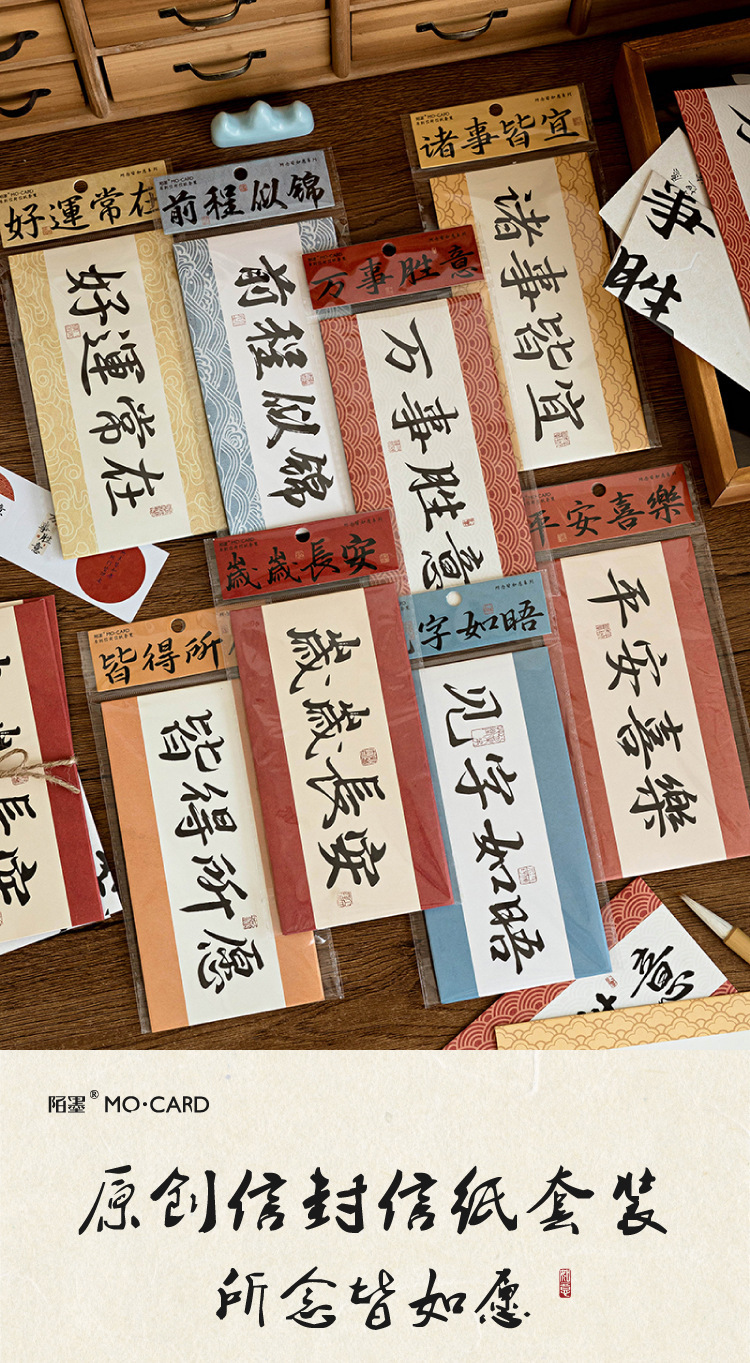 好運常在
好運常在
前程似錦
前程似錦
万事胜意
万事胜意
诸事皆宜
诸事皆宜
歲歲長安
歲歲長安
皆得所
皆得所愿
字如晤
见字如晤
平安喜樂
平安喜樂
事
胜
長安
意
陌墨® MO·CARD
原创信封信纸套装
所念皆如愿